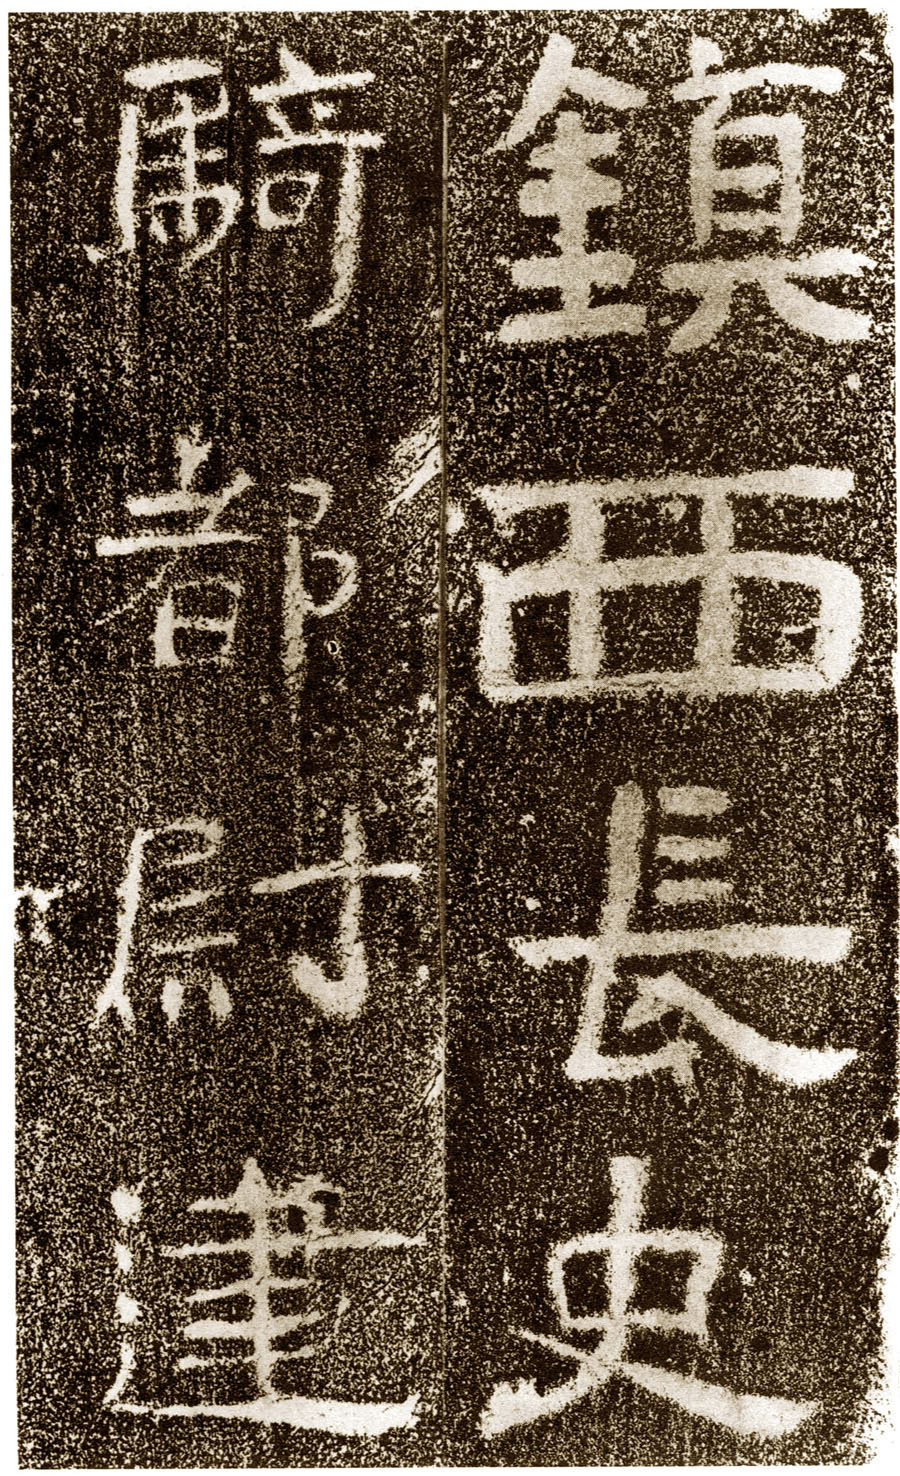 鎮西長史
騎都尉建